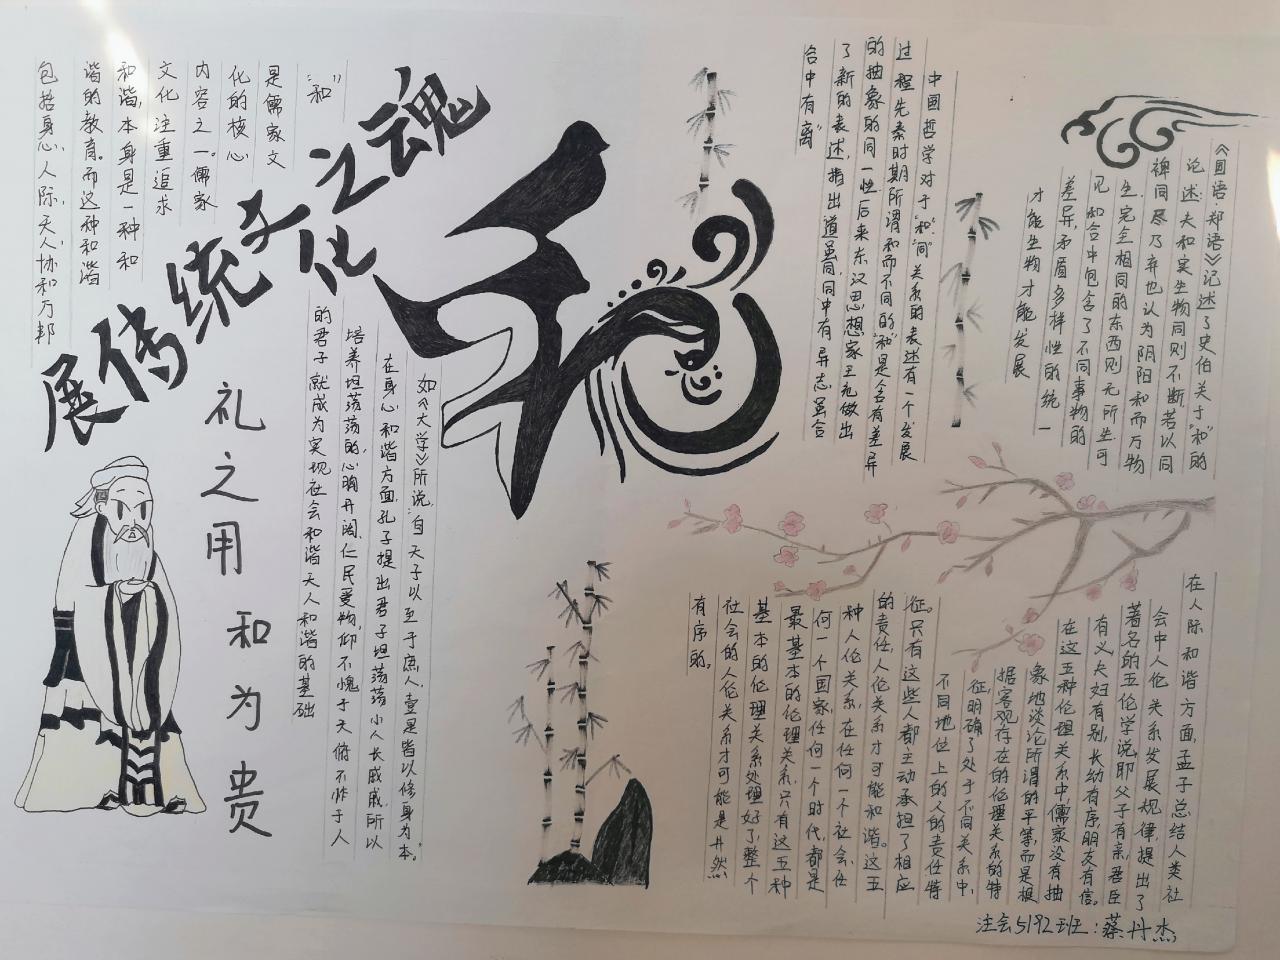 展传统文化之魂
和
礼之用
和为贵
“和”
是儒家文
化的核心
内容之一。儒家
文化注重追求
和谐,本身是一种和
谐的教育。而这种和谐
包括身心、人际、天人、协和万邦
如《大学》所说:“自天子以至于庶人,壹是皆以修身为本。”
在身心和谐方面,孔子提出君子坦荡荡小人长戚戚,所以
培养坦荡荡的,心胸开阔、仁民爱物,仰不愧于天俯不怍于人
的君子就成为实现社会和谐天人和谐的基础
《国语·郑语》记述了史伯关于“和”的
论述:夫和实生物同则不断,若以同
裨同尽乃弃也认为阴阳和而万物
生,完全相同的东西则无所生可
见和合中包含了不同事物的
差异,矛盾多样性的统一
才能生物才能发展
中国哲学对于“和”“同”关系的表述有一个发展
过程先秦时期所谓和而不同的“和”是含有差异
的抽象的同一性后来东汉思想家王充做出
了新的表述,指出道虽同,同中有异志虽合
合中有离”
在人际和谐方面,孟子总结人类社
会中人伦关系发展规律,提出了
著名的五伦学说,即父子有亲,君臣
有义夫妇有别,长幼有序,朋友有信。
在这五种伦理关系中儒家没有抽
象地谈论所谓的平等,而是根
据客观存在的伦理关系的特
征,明确了处于不同关系中,
不同地位上的人的责任特
征。只有这些人都主动承担了相应
的责任,人伦关系才可能和谐。这五
种人伦关系,在任何一个社会任
何一个国家,任何一个时代,都是
最基本的伦理关系,只有这五种
基本的伦理关系处理好了,整个
社会的人伦关系才可能是井然
有序的。
注会5192班:蔡丹杰